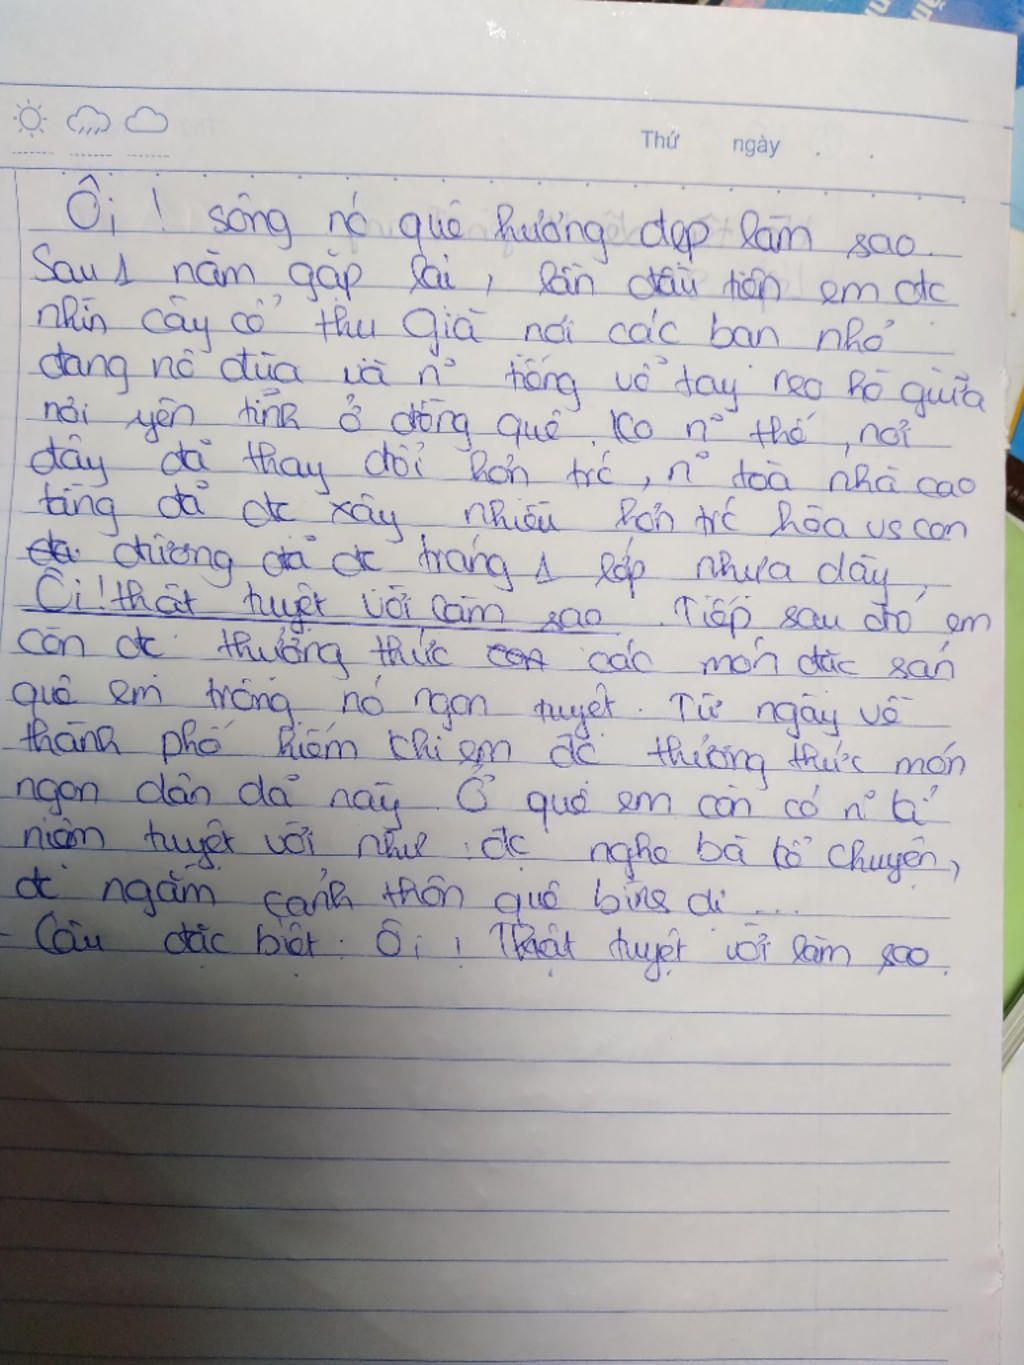 Thứ ngày
Ôi ! sông nó quê hương đẹp làm sao.
Sau 1 năm gặp lại, lần đầu tiên em đc
nhìn cây cổ thụ Già nơi các bạn nhỏ
đang nô đùa và n~ tiếng vỗ tay reo hò giữa
nơi yên tĩnh ở đồng quê. Ko n~ thế, nơi
đây đã thay đổi hơn trc, n~ toà nhà cao
tầng đã đc xây nhiều hơn trc hòa vs con
đường đã đc tráng 1 lớp nhựa dày,
Ôi! thật tuyệt vời làm sao. Tiếp sau đó em
còn đc thưởng thức các món đăc sản
quê em trông nó ngon tuyệt. Từ ngày về
thành phố hiếm khi em đc thưởng thức món
ngon dân dã này. Ở quê em còn có n~ kỉ
niệm tuyệt vời như : đc nghe bà kể chuyện,
đc ngắm cảnh thôn quê bình dị ...
- Câu đăc biệt: Ôi ! Thật tuyệt vời làm sao.